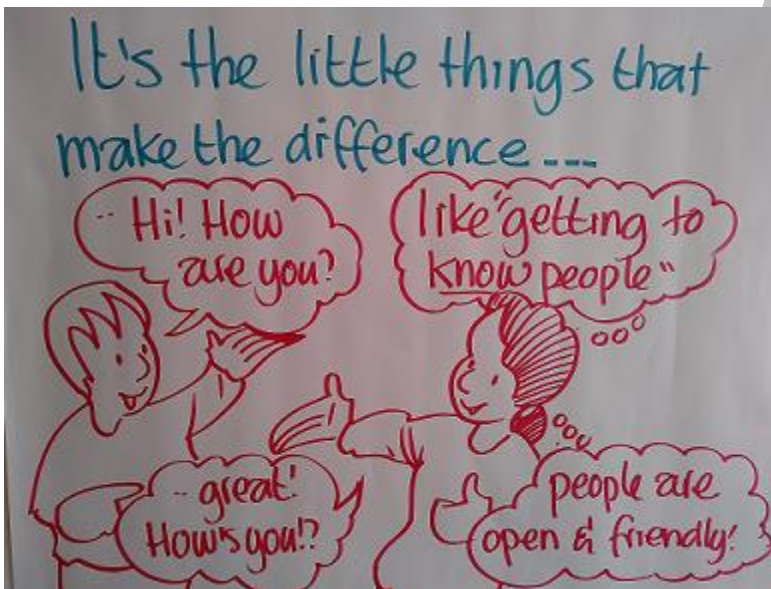 It's the little things that
make the difference ---
-- Hi! How
are you?
like "getting to
know people"
-- great!
How's you!?
people are
open & friendly!